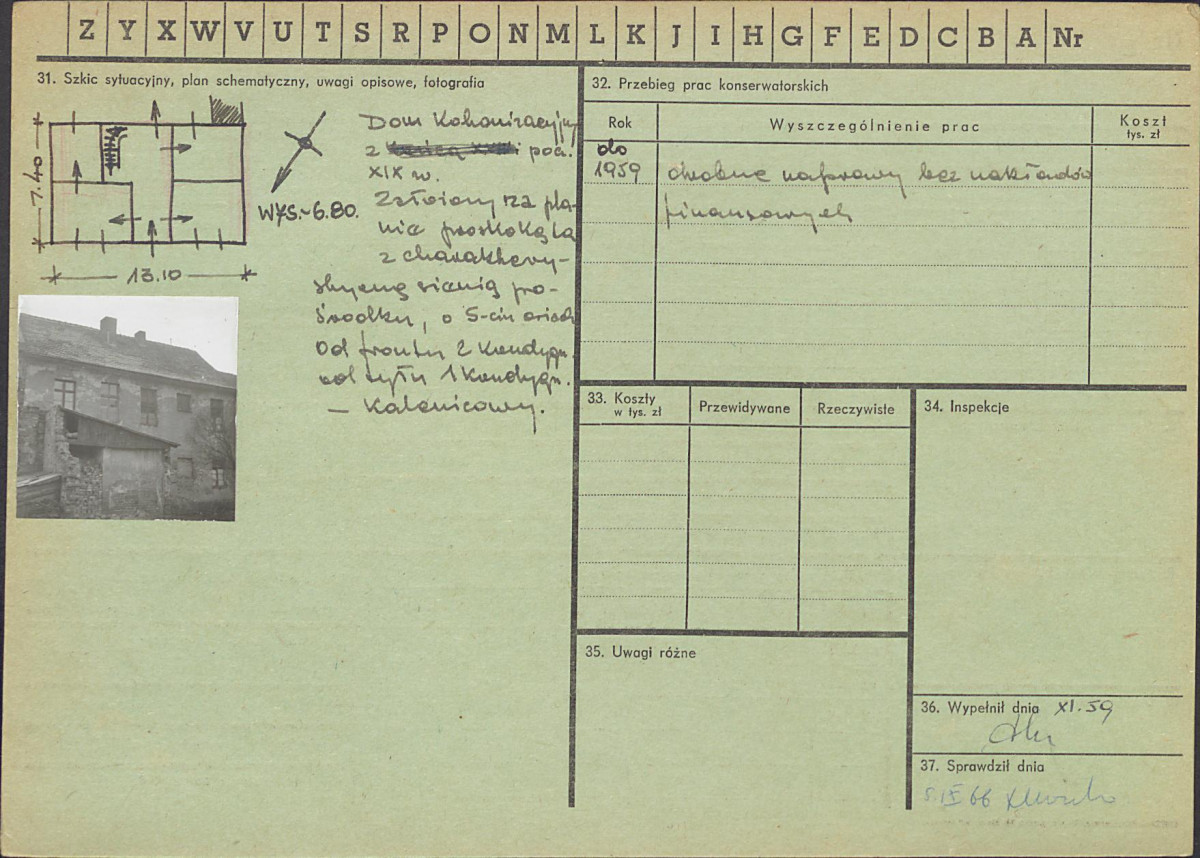 Z Y X W V U T S R P O N M L K J I H G F E D C B A Nr
31. Szkic sytuacyjny, plan schematyczny, uwagi opisowe, fotografia
7.40
13.10
WYS.~6.80.
Dom Kolonizacyjny
z pocz.
XIX w.
Założony na pla-
nie prostokąta
z charaktery-
styczną sienią po-
środku, o 5-ciu osiach
Od frontu 2 kondygn.
od tyłu 1 kondygn.
– Kalenicowy.
32. Przebieg prac konserwatorskich
Rok
Wyszczególnienie prac
Koszt
tys. zł
do
1959
drobne naprawy bez nakładów
finansowych
33. Koszty
w tys. zł
Przewidywane
Rzeczywiste
34. Inspekcje
35. Uwagi różne
36. Wypełnił dnia XI.59
37. Sprawdził dnia
5.IX 66